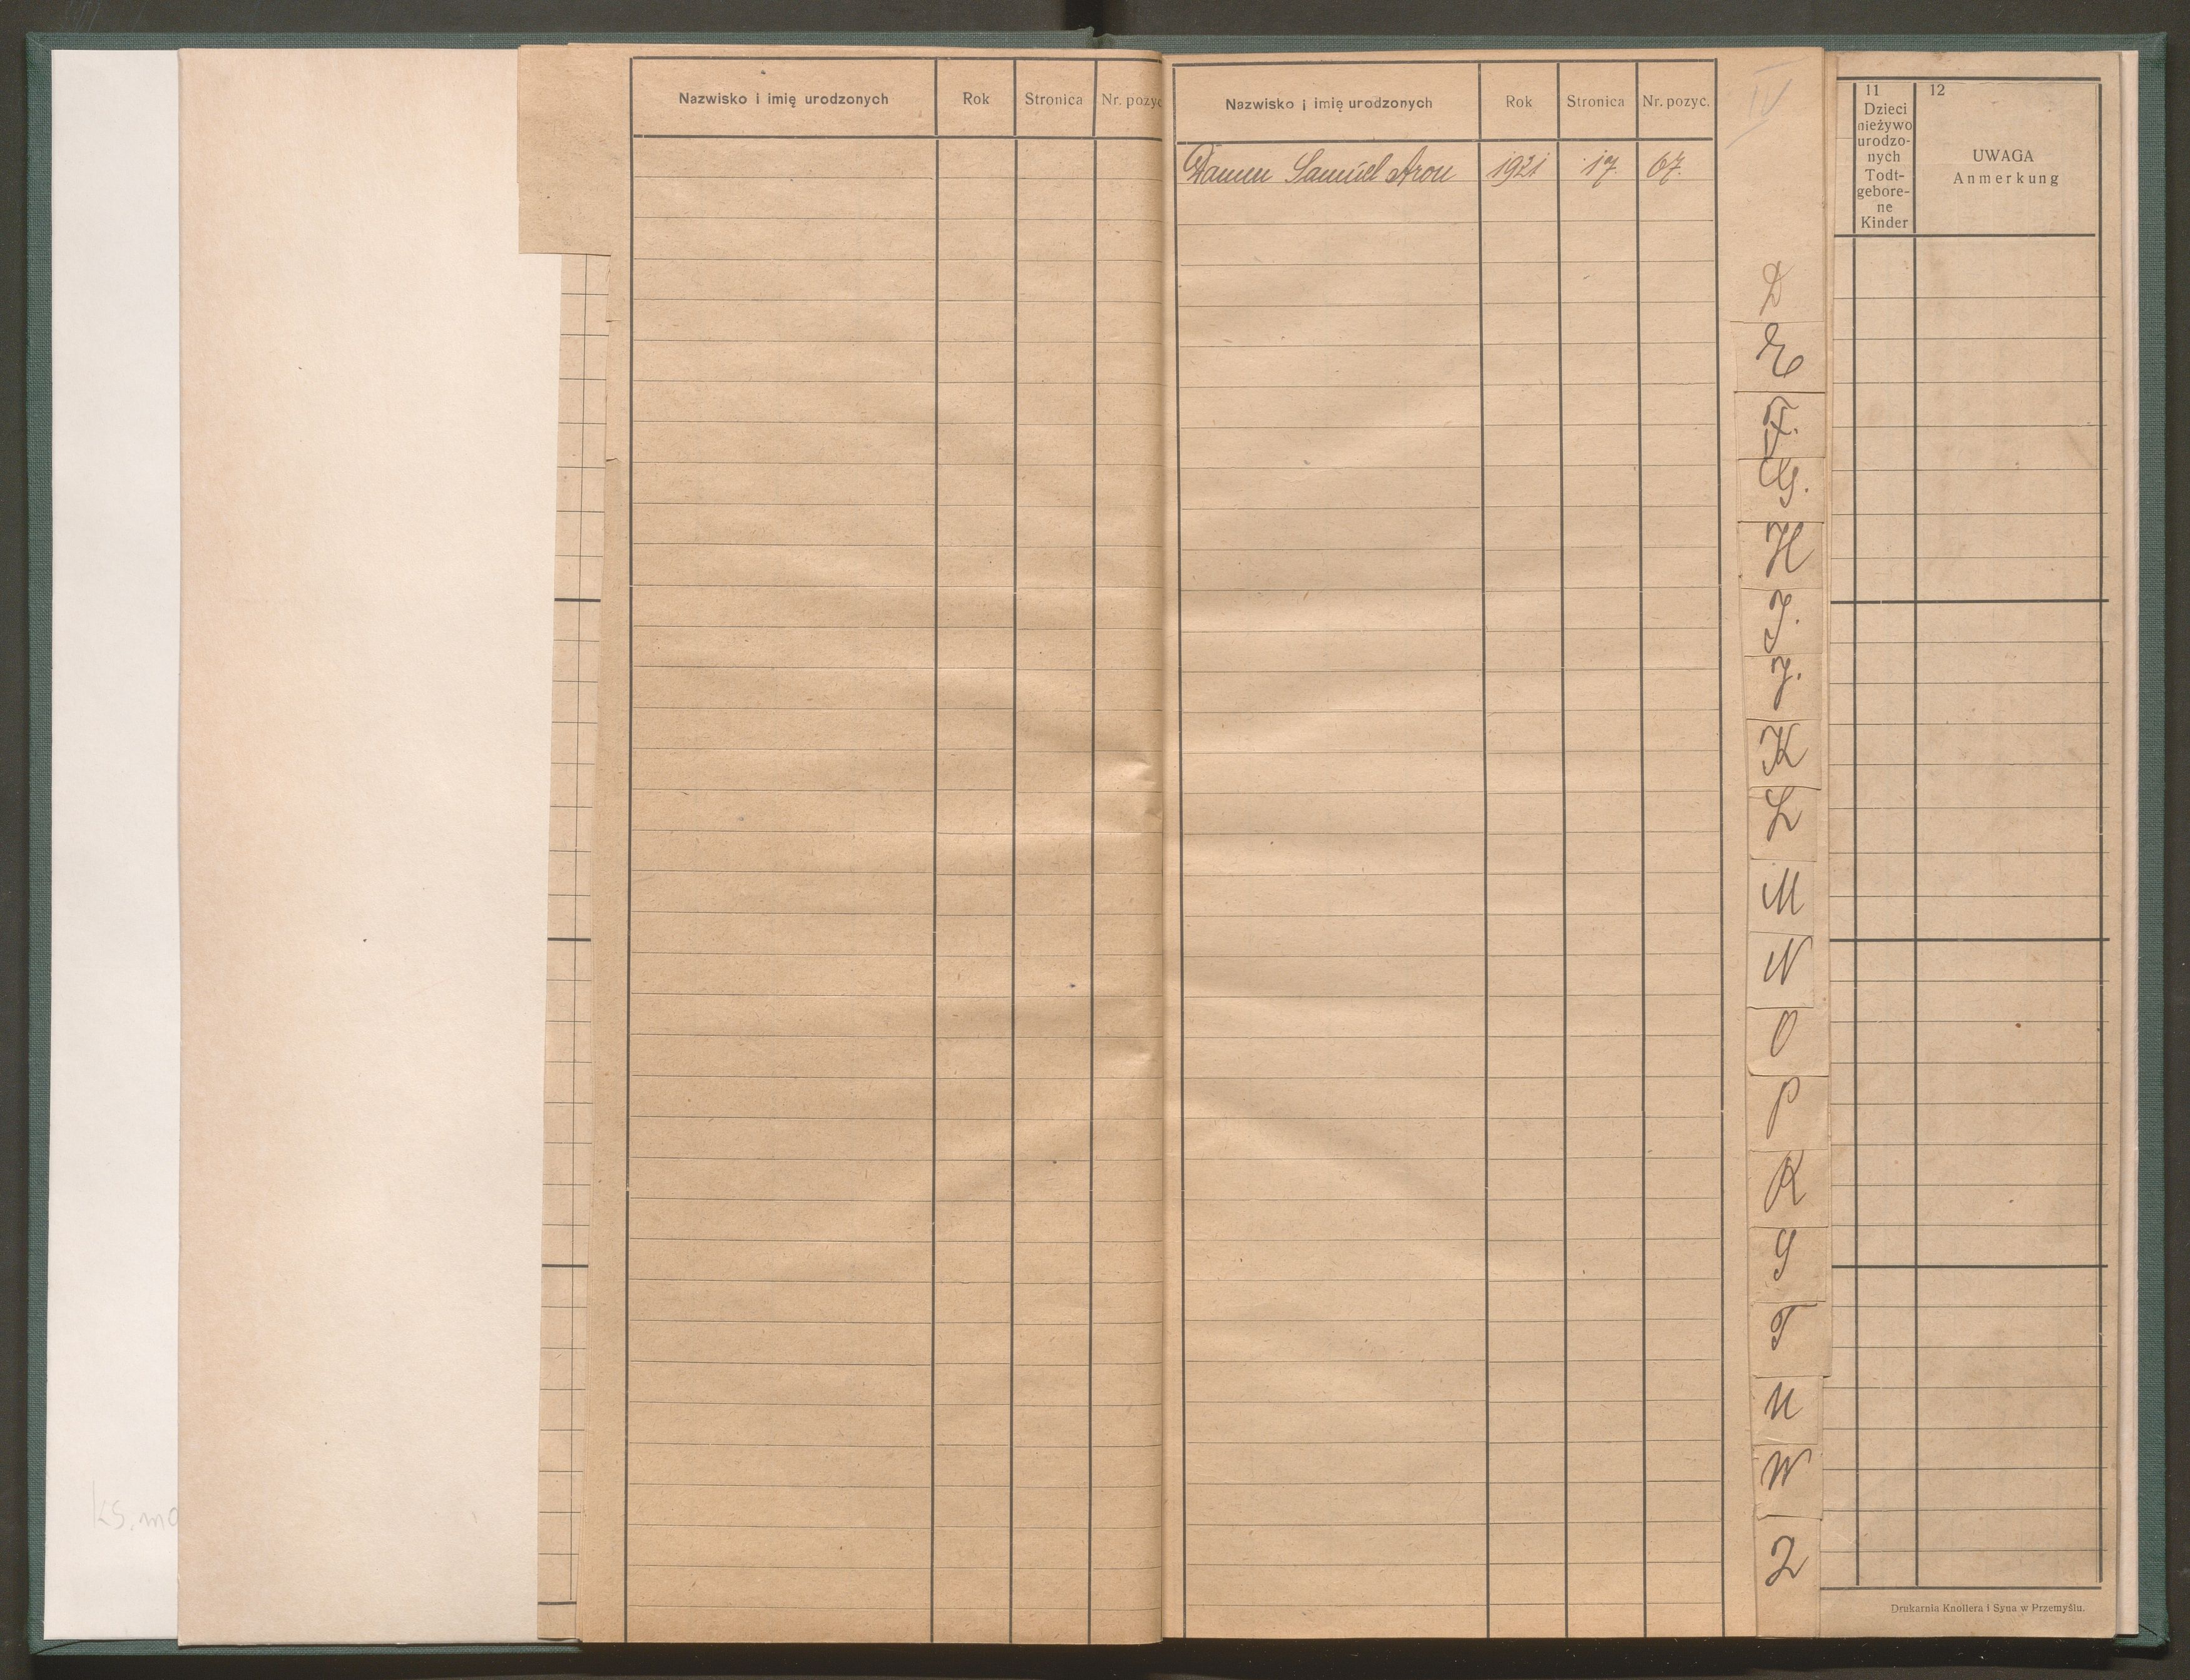 Nazwisko i imię urodzonych Rok Stronica Nr. pozyc
Nazwisko i imię urodzonych Rok Stronica Nr. pozyc.
Damm Samuel Aron 1921 17. 67.
IV
D
E
F.
G.
H
I.
J.
K
L
M
N
O
P
R
S
T
U
W
Z
11
Dzieci
nieżywo
urodzo-
nych
Todt-
gebore-
ne
Kinder
12
UWAGA
Anmerkung
Drukarnia Knollera i Syna w Przemyślu.
ks. mo